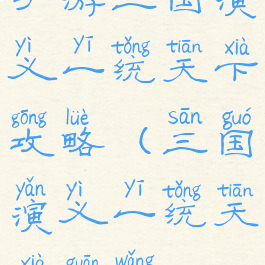 手游三国演
yì yī tǒng tiān xià
义一统天下
gōng lüè sān guó
攻略（三国
yǎn yì yī tǒng tiān
演义一统天
xià guān wǎng